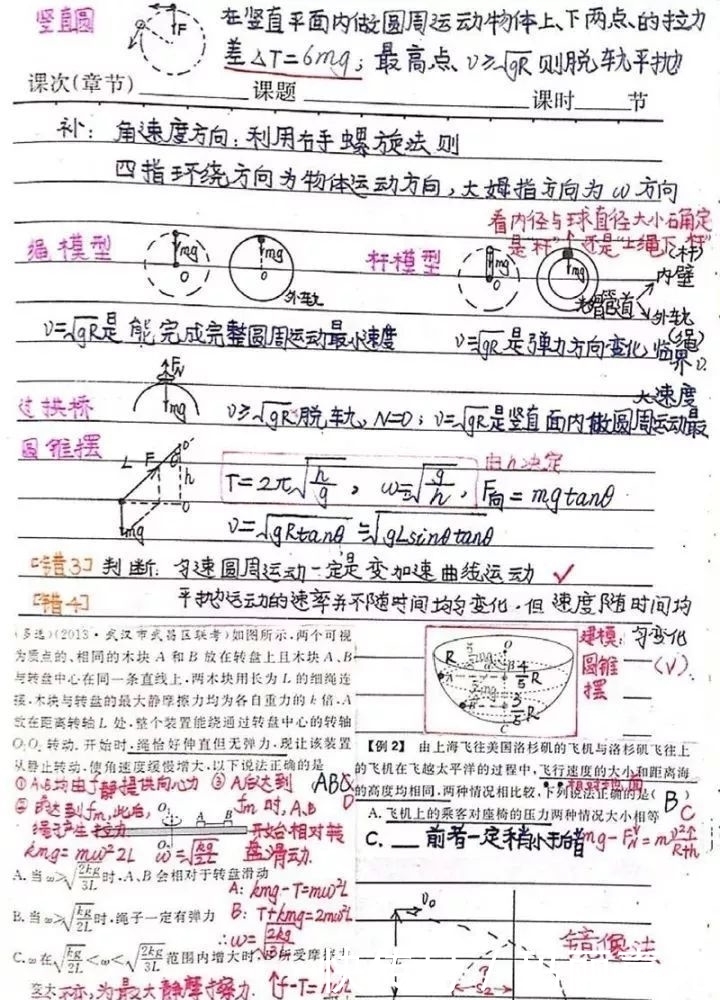 竖直圆
F
在竖直平面内做圆周运动物体上、下两点、的拉力
差△T=6mg; 最高点、v≥√gR 则脱轨平抛
课次(章节) 课题 课时 节
补: 角速度方向: 利用右手螺旋法则
四指环绕方向为物体运动方向, 大姆指方向为ω方向
看内径与球直径大小确定
是"杆"还是"上绳下杆"
绳模型 mg O mg O 外轨
杆模型 mg O mg 光滑管道 (杆) 内壁 外轨 (绳)
v=√gR是能完成完整圆周运动最小速度
v=√gR是弹力方向变化临界v.
过拱桥 FN mg
v≥√gR脱轨, N=0; v=√gR是竖直面内做圆周运动最
大速度
圆锥摆 L F θ O' h O mg
T=2π√(h/g), ω=√(g/h), 由h决定 F向=mgtanθ
v=√gRtanθ=√gLsinθtanθ
[错3] 判断: 匀速圆周运动一定是变加速曲线运动 ✓
[错4] 平抛运动的速率并不随时间均匀变化. 但速度随时间均
匀变化 (√).
(多选)(2013·武汉市武昌区联考)如图所示,两个可视
为质点的、相同的木块 A 和 B 放在转盘上且木块 A、B
与转盘中心在同一条直线上,两木块用长为 L 的细绳连
接,木块与转盘的最大静摩擦力均为各自重力的 k 倍,A
放在距离转轴 L 处,整个装置能绕通过转盘中心的转轴
O₁O₂ 转动,开始时,绳恰好伸直但无弹力,现让该装置
从静止转动,使角速度缓慢增大,以下说法正确的是
①A、B均由f静提供向心力 ③A后达到 ABD
fm时, A、B
开始相对转
盘滑动.
kmg=mω²2L ω=√(kg/2L)
A. 当 ω>√(2kg/3L)时,A、B会相对于转盘滑动
A: kmg-T=mω²L
B. 当 ω>√(kg/2L)时,绳子一定有弹力
B: T+kmg=2mω²L
∴ω=√(2kg/3L)
C. ω在√(kg/2L)<ω<√(2kg/3L)范围内增大时
变大 不变, 为最大静摩擦力.
建模:
圆锥
摆
R O A B C 4/5R 3/5R
【例 2】 由上海飞往美国洛杉矶的飞机与洛杉矶飞往上
的飞机在飞越太平洋的过程中,飞行速度的大小和距离海
的高度均相同,两种情况相比较,下列说法正确的是(
A. 飞机上的乘客对座椅的压力两种情况大小相等
C. 前者一定稍小于后者
v₀
镜像法